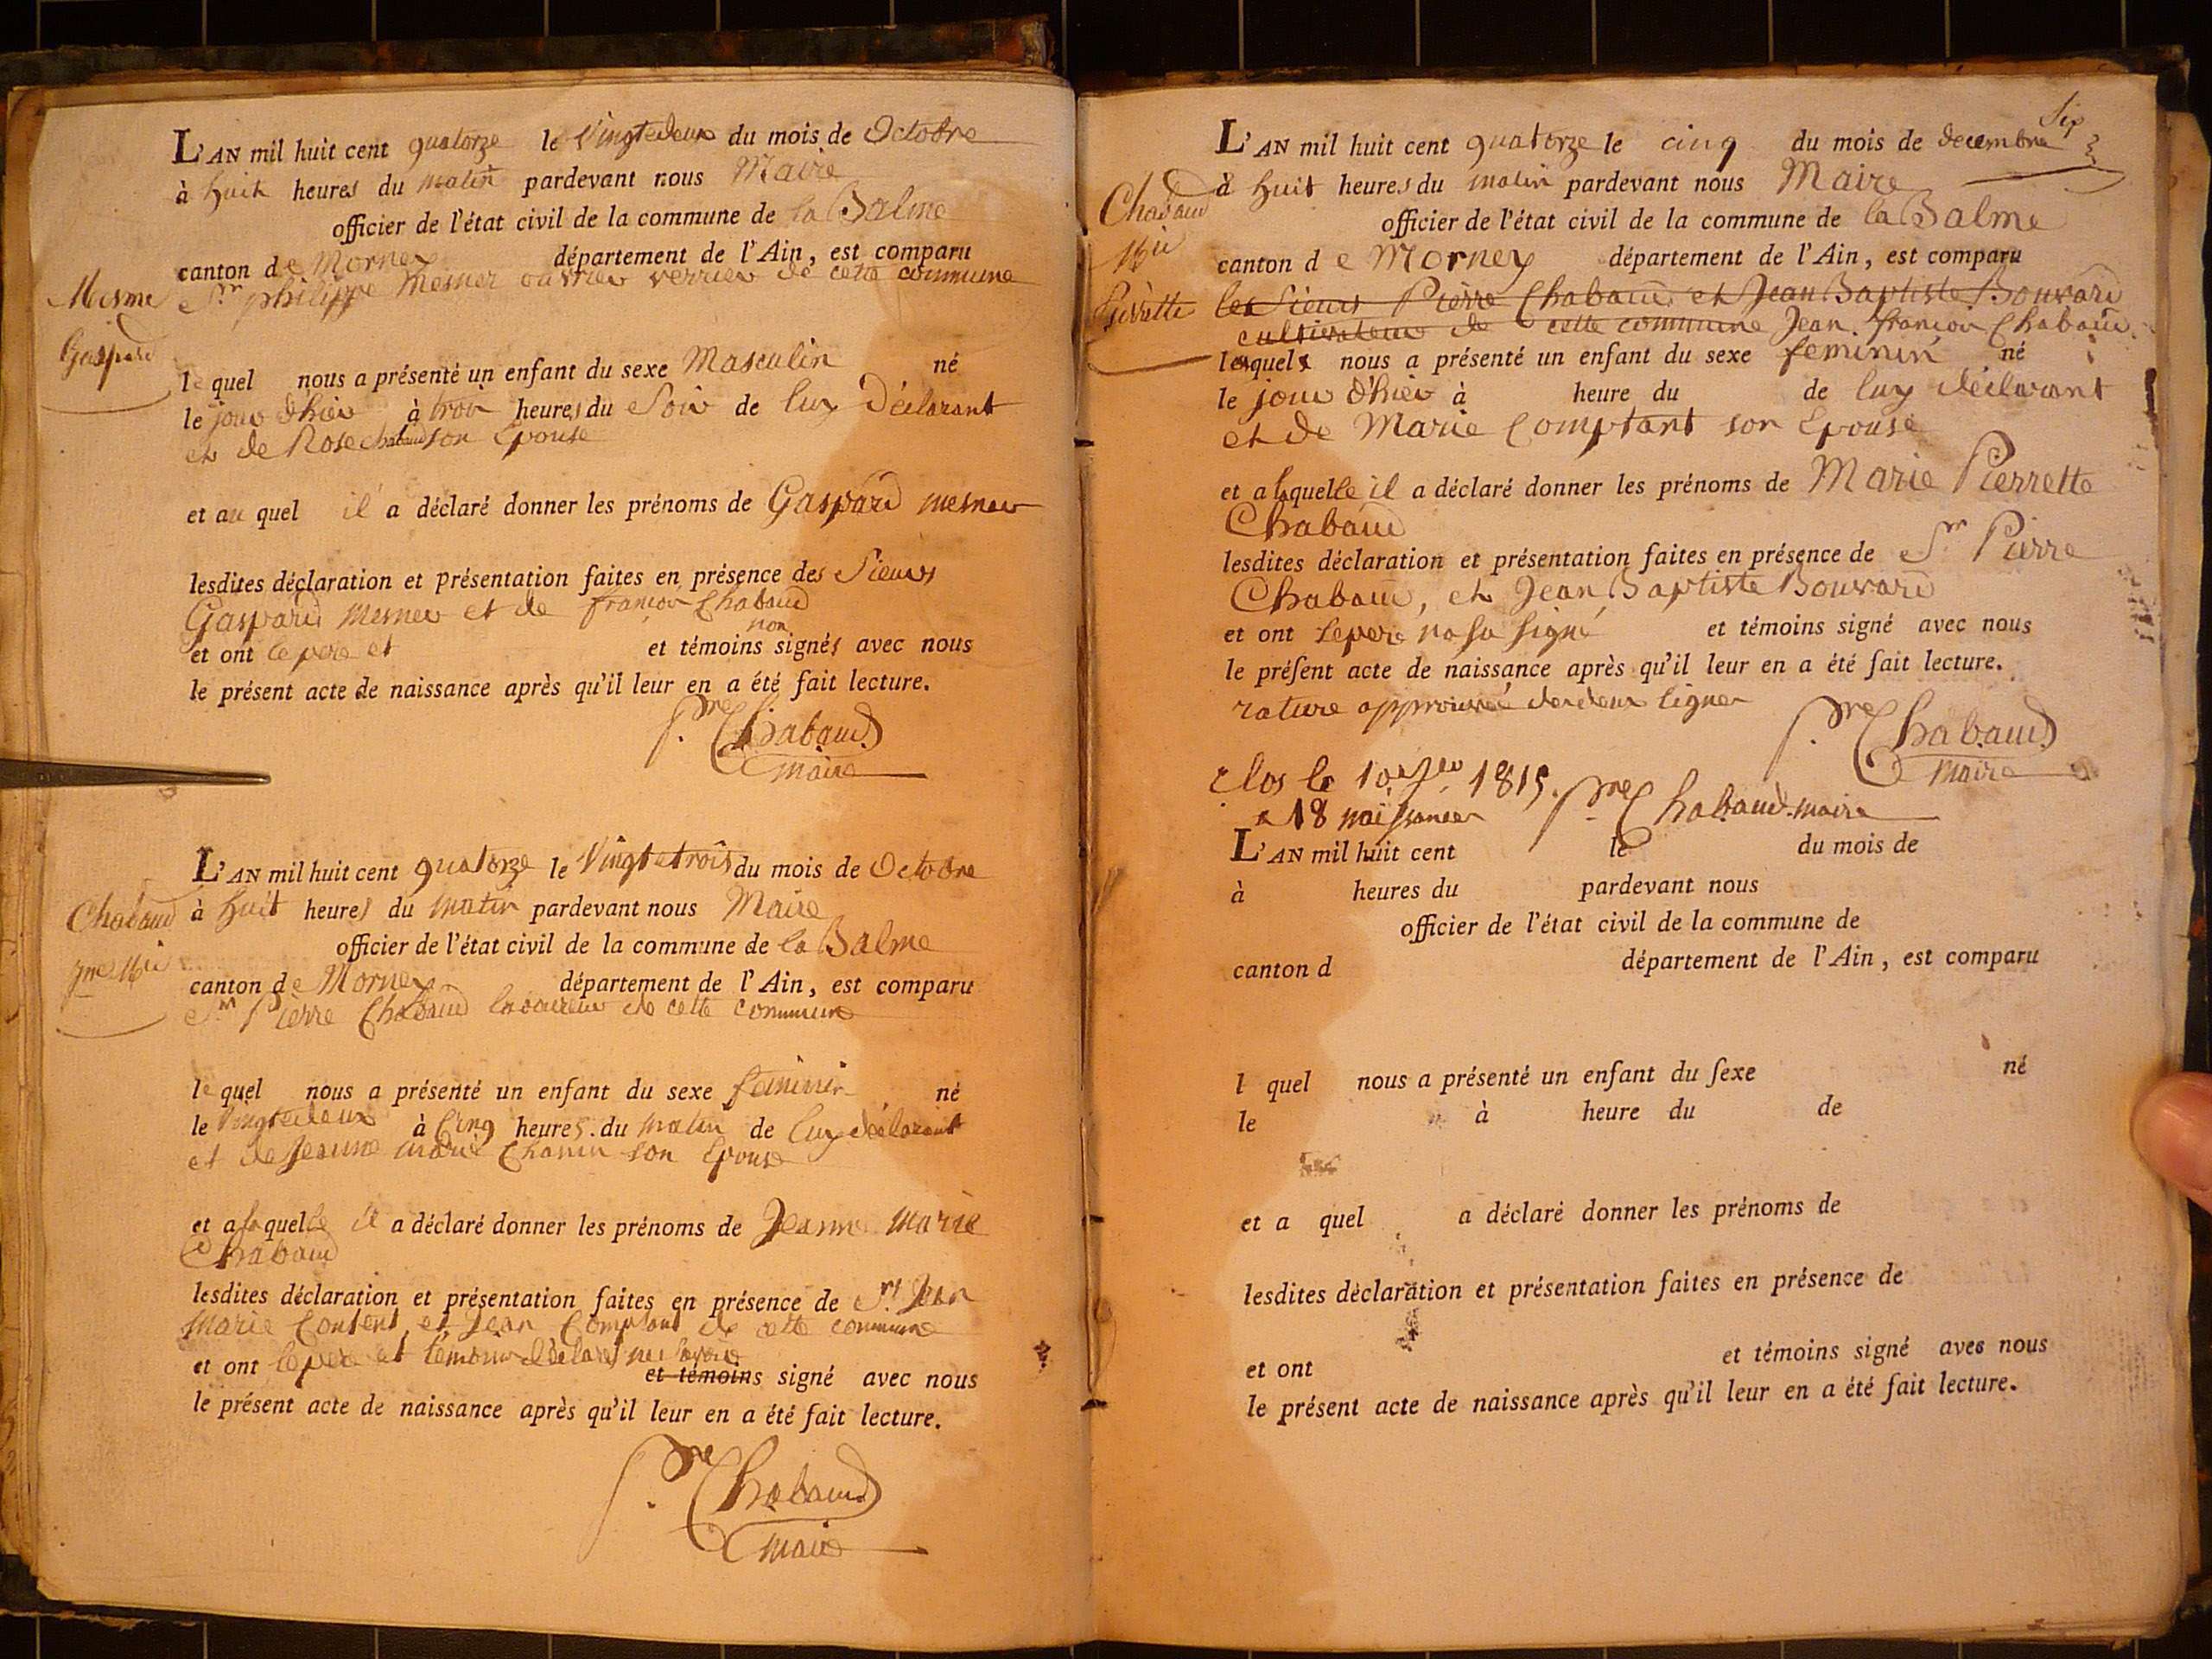 L'AN mil huit cent quatorze le Vingtedeux du mois de Octobre
à huit heures du matin pardevant nous Maire
officier de l'état civil de la commune de la Balme
canton de Mornex département de l'Ain, est comparu
Sr philippe Mesner ouvrier verrier de cette commune
Mesme
Gaspard
le quel nous a présenté un enfant du sexe Masculin né
le jour d'hier à trois heures du Soir de luy Déclarant
et de Rose chabaud son Epouse
et au quel il a déclaré donner les prénoms de Gaspard mesner
lesdites déclaration et présentation faites en présence des Sieurs
Gaspard Mesner et de françois Chabaud
non
et ont le pere et et témoins signés avec nous
le présent acte de naissance après qu'il leur en a été fait lecture.
P.re Chabaud
maire
L'AN mil huit cent quatorze le Vingtetrois du mois de Octobre
Chabaud
jne Mie
à huit heures du matin pardevant nous Maire
officier de l'état civil de la commune de la Balme
canton de Mornex département de l'Ain, est comparu
Sr Pierre Chabaud laboureur de cette commune
le quel nous a présenté un enfant du sexe feminin né
le Vingtedeux à Cinq heures du matin de luy déclarant
et de Jeanne marie Chanin son Epouse
et a laquelle il a déclaré donner les prénoms de Jeanne Marie
Chabaud
lesdites déclaration et présentation faites en présence de Srs Jean
Marie Content et Jean Comptant de cette commune
et ont le pere et témoins déclaré ne savoir
et témoins signé avec nous
le présent acte de naissance après qu'il leur en a été fait lecture.
P.re Chabaud
maire
Six
L'AN mil huit cent quatorze le cinq du mois de decembre
à huit heures du matin pardevant nous Maire
Chabaud
Mie
Pierrette
officier de l'état civil de la commune de la Balme
canton de Mornex département de l'Ain, est comparu
les Sieurs Pierre Chabaud et Jean Baptiste Bouvard
cultivateur de cette commune Jean francois Chabaud
lesquels nous a présenté un enfant du sexe feminin né
le jour d'hier à heure du de luy déclarant
et de Marie Comptant son Epouse
et a laquelle il a déclaré donner les prénoms de Marie Pierrette
Chabaud
lesdites déclaration et présentation faites en présence de Sr Pierre
Chabaud, et Jean Baptiste Bouvard
et ont le pere na su signé et témoins signé avec nous
le présent acte de naissance après qu'il leur en a été fait lecture.
rature approuvée des deux lignes
P.re Chabaud
maire
Clos le 10er 1815. P.re Chabaud maire
a 18 naissances
L'AN mil huit cent le du mois de
à heures du pardevant nous
officier de l'état civil de la commune de
canton d département de l'Ain, est comparu
l quel nous a présenté un enfant du sexe né
le à heure du de
et a quel a déclaré donner les prénoms de
lesdites déclaration et présentation faites en présence de
et ont et témoins signé avec nous
le présent acte de naissance après qu'il leur en a été fait lecture.